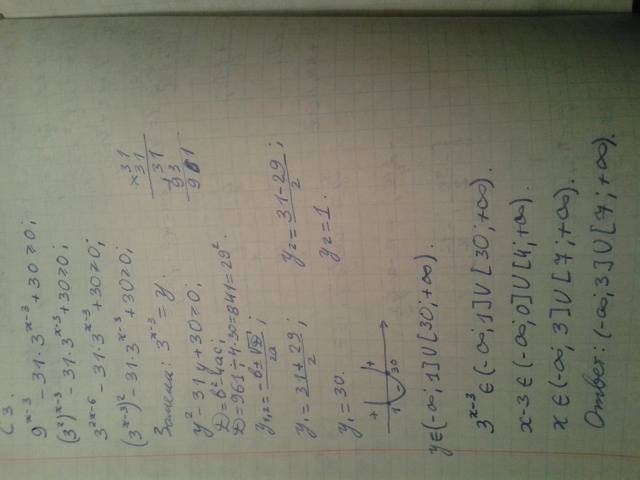 С 3.
9^{x-3} - 31·3^{x-3} + 30 ≥ 0;
(3²)^{x-3} - 31·3^{x-3} + 30 ≥ 0;
3^{2x-6} - 31·3^{x-3} + 30 ≥ 0;
(3^{x-3})² - 31·3^{x-3} + 30 ≥ 0;
×31
31
31
93
961
Замена: 3^{x-3} = y.
y² - 31y + 30 ≥ 0;
D = b² - 4ac;
D = 961 - 4·30 = 841 = 29².
y₁,₂ = (-b ± √D) / 2a;
y₁ = (31 + 29) / 2; y₂ = (31 - 29) / 2;
y₁ = 30. y₂ = 1.
+ 1 - 30 +
y ∈ (-∞; 1] ∪ [30; +∞).
3^{x-3} ∈ (-∞; 1] ∪ [30; +∞).
x-3 ∈ (-∞; 0] ∪ [4; +∞).
x ∈ (-∞; 3] ∪ [7; +∞).
Ответ: (-∞; 3] ∪ [7; +∞).